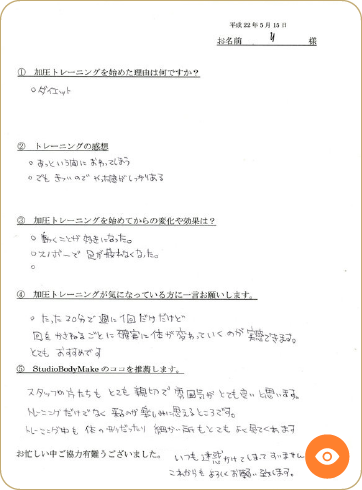 平成22年5月15日
お名前 y 様
① 加圧トレーニングを始めた理由は何ですか?
○ダイエット
② トレーニングの感想
○あっという間におわってしまう
○でも きついので やった感がしっかりある
③ 加圧トレーニングを始めてからの変化や効果は?
○動くことが好きになった。
○スノボーで足が疲れなくなった。
○
④ 加圧トレーニングが気になっている方に一言お願いします。
○たった20分で週に1回だけだけど
回をかさねるごとに確実に体が変わっていくのが実感できます。
とても おすすめです
⑤ StudioBodyMakeのココを推薦します。
スタッフの方たちも とても親切で 雰囲気がとても良いと思います。
トレーニングだけでなく 来るのが楽しみに思えるところです。
トレーニング中も 体の 細かい所もとてもよく見てくれます
お忙しい中ご協力有難うございました。
いつも迷惑かけてしまってすいません
これからもよろしくお願い致します。